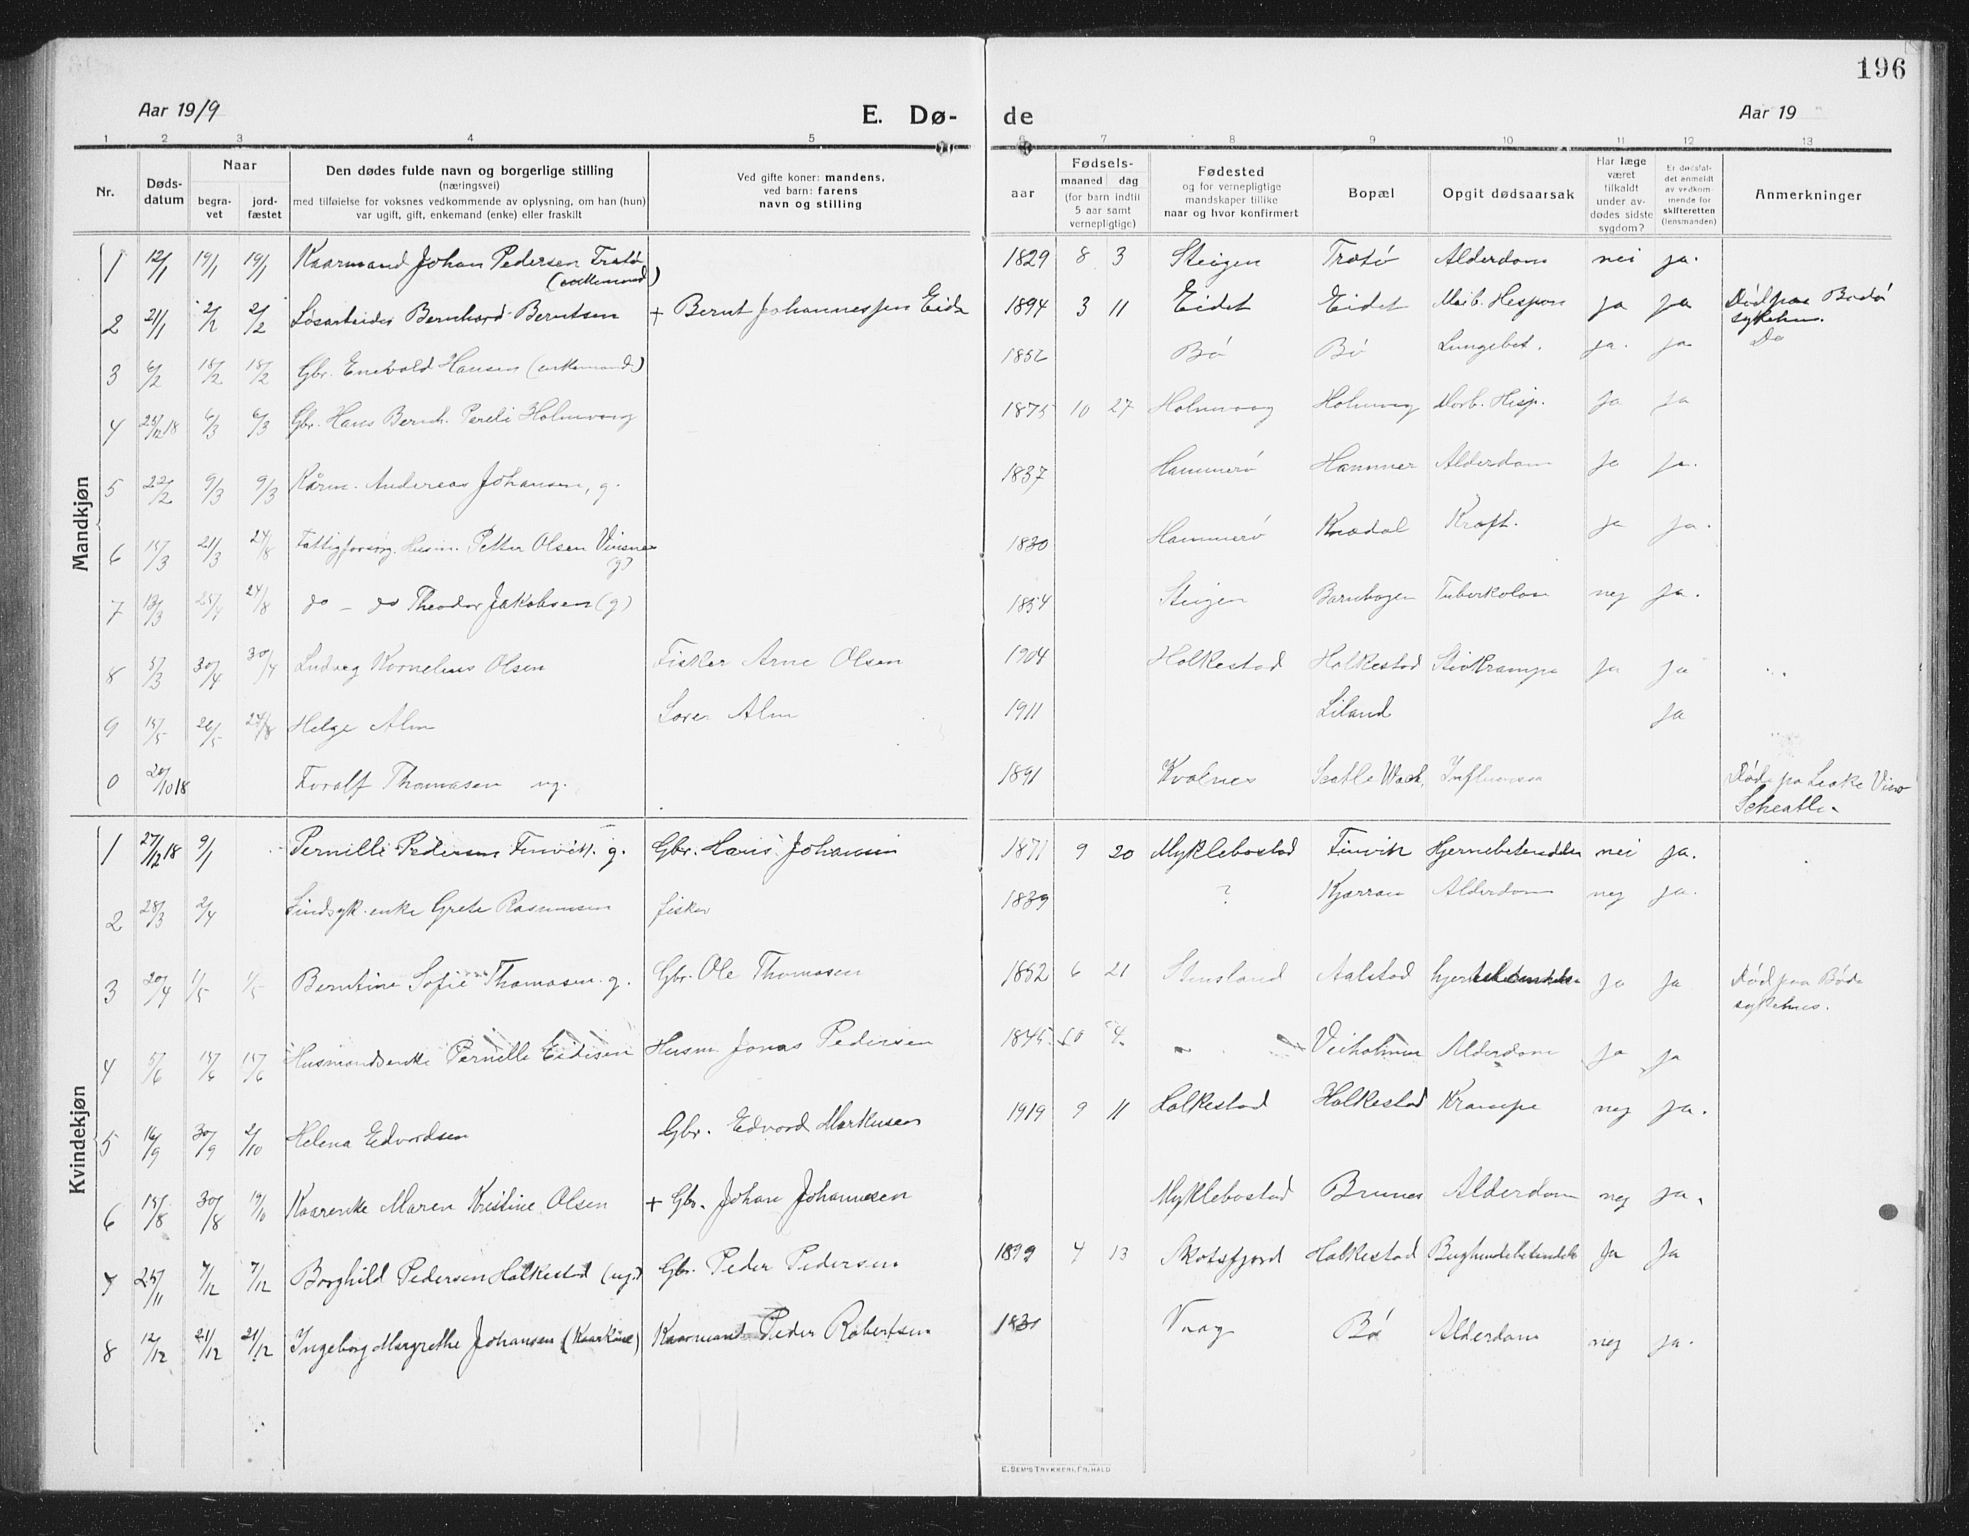 196
Aar 1919 E. Dø- de Aar 19
1 2 3 4 5 6 7 8 9 10 11 12 13
Nr.
Dødsdatum
Naar
begravet
jordfæstet
Den dødes fulde navn og borgerlige stilling
(næringsvei)
med tilføielse for voksnes vedkommende av oplysning, om han (hun)
var ugift, gift, enkemand (enke) eller fraskilt
Ved gifte koner: mandens.
ved barn: farens
navn og stilling
aar
Fødsels-
maaned dag
(for barn indtil
5 aar samt
vernepligtige)
Fødested
og for vernepligtige
mandskaper tillike
naar og hvor konfirmert
Bopæl
Opgit dødsaarsak
Har læge
været
tilkaldt
under av-
dødes sidste
sygdom?
Er dødsfal-
det anmeldt
av vedkom-
mende for
skifteretten
(lensmanden)
Anmerkninger
Mandkjøn
1 12/1 19/1 19/1 Kaarmand Johan Pedersen 1829 8 3 Steigen Alderdom nei ja.
2 21/1 2/2 Løsarbeider Bernhard Berntsen + Bernt Johannessen 1894 3 11 Eidet Eidet ja ja Død paa Bodø
sykehus.
3 6/2 18/2 18/2 Gbr. Enevold Hansen (enkemand) 1852 Bø Bø Lungebet. ja. ja Do
4 25/12 18 6/3 6/3 Gbr. Hans Bernh. 1875 10 27 Holmvaag Holmvag ja ja
5 22/2 9/3 9/3 Kårm. Andereas Johansen, g. 1837 Hammerø Hammer Alderdom ja ja.
6 15/3 21/3 24/8 Fattigforsørg. Husm. Petter Olsen (g) 1830 Hammerø Kræft. ja ja.
7 13/3 25/4 24/8 do - do Theodor Jakobsen (g) 1854 Steigen Barnhagen nej ja.
8 5/3 30/4 30/4 Ludvig Kornelius Olsen Fisker Arne Olsen 1904 Holkestad Holkestad Stivkrampe ja ja
9 15/5 26/5 24/8 Helge Alm Alm 1911 Liland ja
0 20/10 18 Toralf Thomasen ug. 1891 Kvalnes Seatle Wash. Influensa
Kvindekjøn
1 27/12 18 9/1 Pernille Pedersen Finvik. g. Gbr. Hans Johansen 1871 9 20 Myklebostad Finvik nei ja.
2 28/3 2/4 Sindsyk enke Grete Rasmusen fisker 1839 ? Kjærran Alderdom nej ja.
3 20/4 1/5 1/5 Berntine Sofie Thomasen. g. Gbr. Ole Thomasen 1852 6 21 Stensland Aalstad ja ja Død paa Bodø
sykehus.
4 5/6 15/6 15/6 Husmandsenke Pernille Husm Jonas Pedersen 1845 10 4 Veiholmen Alderdom ja ja
5 16/9 30/9 2/10 Helena Edvardsen Gbr. Edvard Markusen 1919 9 11 Holkestad Holkestad Krampe nej ja.
6 15/8 30/8 19/10 Kaarenke Maren Kristine Olsen + Gbr. Johan Johannesen Myklebostad Brunes Alderdom nej ja.
7 25/11 7/12 7/12 Borghild Pedersen Holkestad (ug.) Gbr. Peder Pedersen 1899 4 13 Skotsfjord Holkestad ja ja
8 12/12 21/12 21/12 Ingeborg Margrethe Johansen Kaarmand Peder Robertsen 1831 Vaag Bø Alderdom nej ja.
E. SEM'S TRYKKERI, FR.HALD